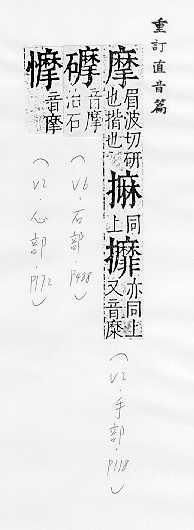 重訂直音篇
摩眉波切研也揩也同上攠亦同上又音糜
（V2·手部·P118）
音摩治石
（V6·石部·P488）
音摩
（V2·心部·P172）